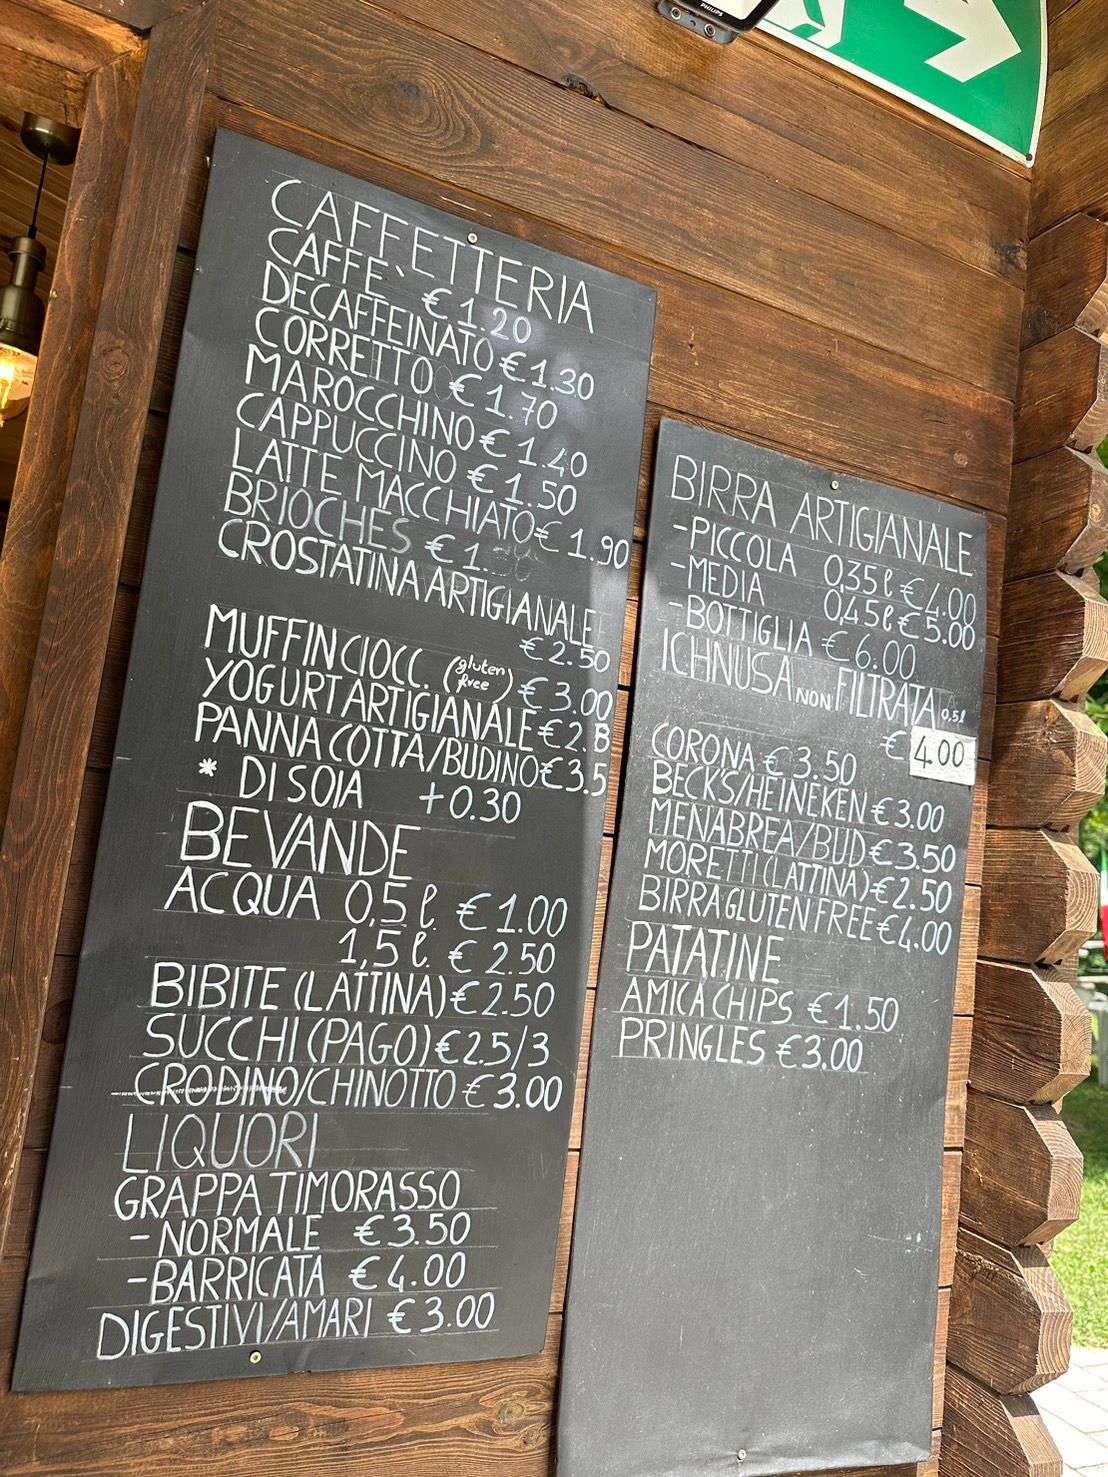 PHILIPS
CAFFETTERIA
CAFFÈ € 1.20
DECAFFEINATO € 1.30
CORRETTO € 1.70
MAROCCHINO € 1.40
CAPPUCCINO € 1.50
LATTE MACCHIATO € 1.90
BRIOCHES € 1.
CROSTATINA ARTIGIANALE
€ 2.50
MUFFIN CIOCC. (gluten free) € 3.00
YOGURT ARTIGIANALE €
PANNA COTTA/BUDINO € 3.5
* DI SOIA + 0.30
BEVANDE
ACQUA 0,5 l. € 1.00
1,5 l. € 2.50
BIBITE (LATTINA) € 2.50
SUCCHI (PAGO) € 2.5/3
CRODINO/CHINOTTO € 3.00
LIQUORI
GRAPPA TIMORASSO
- NORMALE € 3.50
- BARRICATA € 4.00
DIGESTIVI/AMARI € 3.00
BIRRA ARTIGIANALE
- PICCOLA 0,35 l € 4.00
- MEDIA 0,45 l € 5.00
- BOTTIGLIA € 6.00
ICHNUSA NON FILTRATA 0,5 l
€ 4.00
CORONA € 3.50
BECK'S/HEINEKEN € 3.00
MENABREA/BUD € 3.50
MORETTI (LATTINA) € 2.50
BIRRA GLUTEN FREE € 4.00
PATATINE
AMICA CHIPS € 1.50
PRINGLES € 3.00